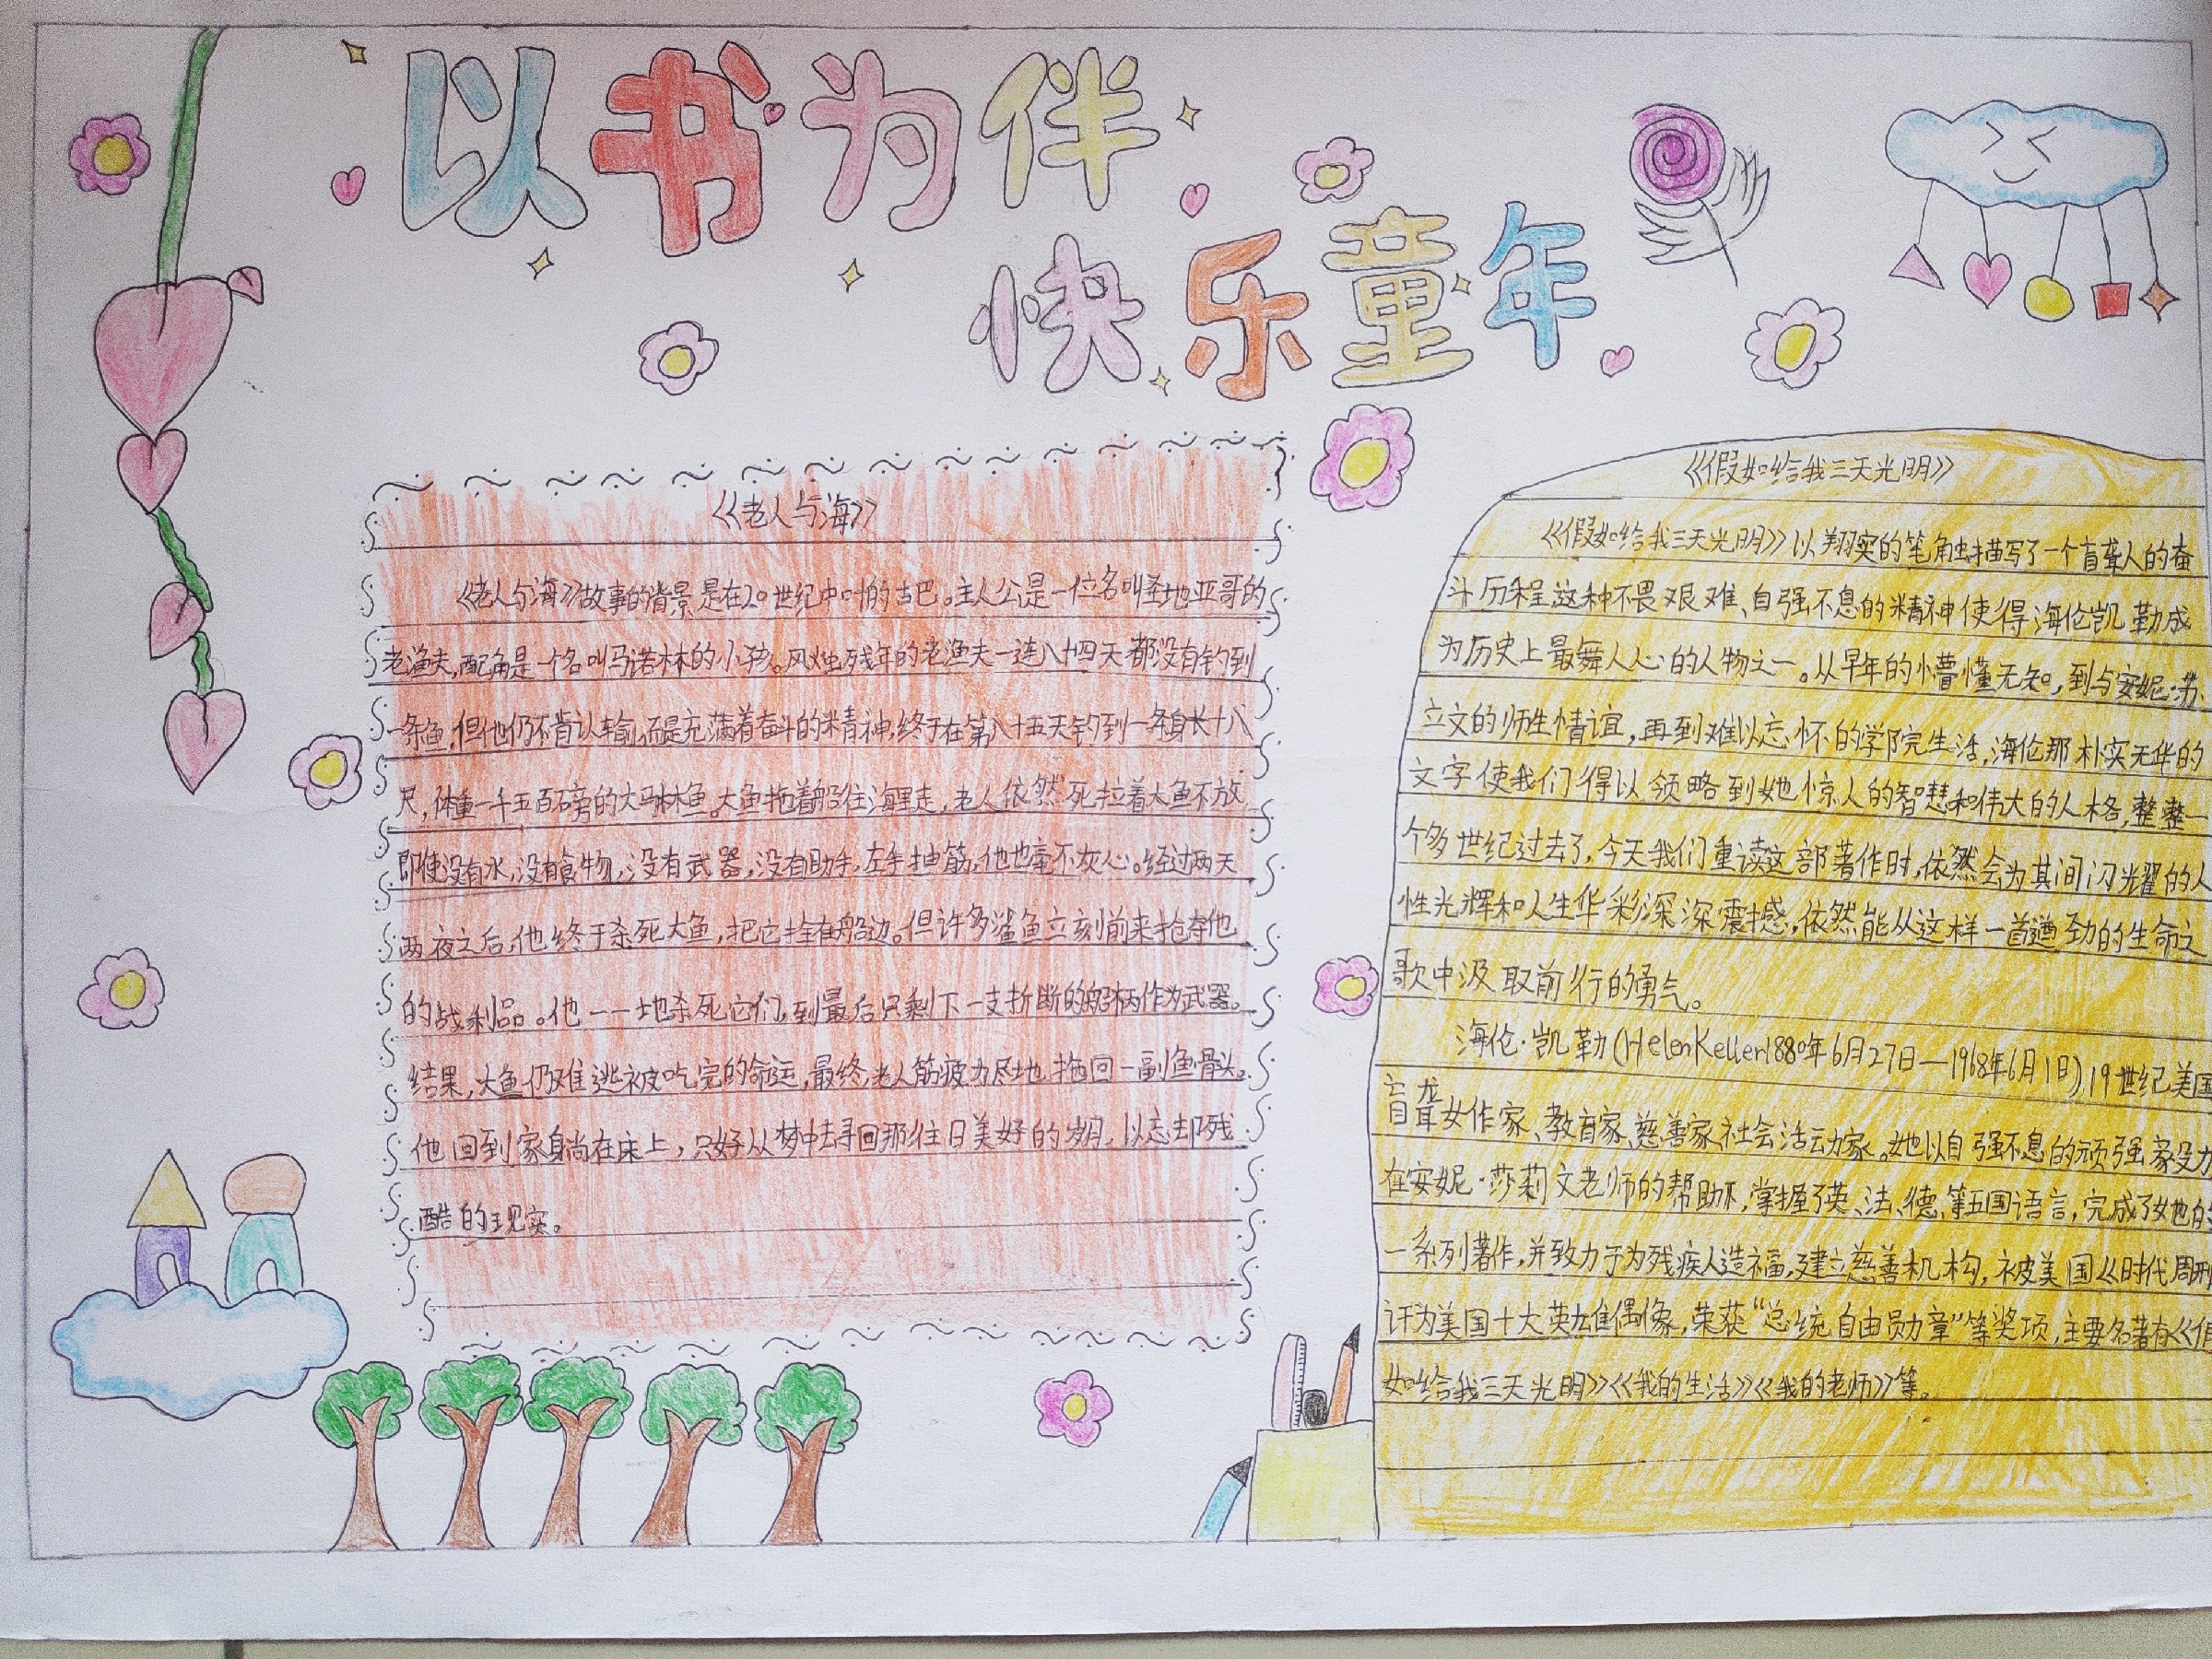 以书为伴
快乐童年
《老人与海》
《老人与海》故事的背景是在20世纪中叶的古巴。主人公是一位名叫圣地亚哥的
老渔夫,配角是一个名叫马诺林的小孩。风烛残年的老渔夫一连八十四天都没有钓到
一条鱼,但他仍不肯认输,而是充满着奋斗的精神,终于在第八十五天钓到一条身长十八
尺,体重一千五百磅的大马林鱼。大鱼拖着船往海里走,老人依然死拉着大鱼不放,
即使没有水,没有食物,没有武器,没有助手,左手抽筋,他也毫不灰心。经过两天
两夜之后,他终于杀死大鱼,把它拴在船边。但许多鲨鱼立刻前来抢夺他
的战利品。他一一地杀死它们,到最后只剩下一支折断的船柄作为武器。
结果,大鱼仍难逃被吃完的命运,最终,老人筋疲力尽地拖回一副鱼骨头。
他回到家身尚在床上,只好从梦中去寻回那往日美好的岁月,以忘却残
酷的现实。
《假如给我三天光明》
《假如给我三天光明》以翔实的笔触描写了一个盲聋人的奋
斗历程,这种不畏艰难、自强不息的精神使得海伦凯勒成
为历史上最舞人心的人物之一。从早年的懵懂无知,到与安妮·苏
立文的师生情谊,再到难以忘怀的学院生活,海伦那朴实无华的
文字使我们得以领略到她惊人的智慧和伟大的人格,整整一
个多世纪过去了,今天我们重读这部著作时,依然会为其间闪光耀的人
性光辉和人生华彩深深震撼,依然能从这样一首遒劲的生命之
歌中汲取前行的勇气。
海伦·凯勒(HelenKeller1880年6月27日—1968年6月1日),19世纪美国
盲聋女作家、教育家、慈善家、社会活动家。她以自强不息的顽强家殳力
在安妮·莎莉文老师的帮助下,掌握了英、法、德、等五国语言,完成了她的
一系列著作,并致力于为残疾人造福,建立慈善机构,被美国《时代周刊
评为美国十大英雄偶像,荣获“总统自由勋章”等奖项,主要名著有《
如给我三天光明》《我的生活》《我的老师》等。